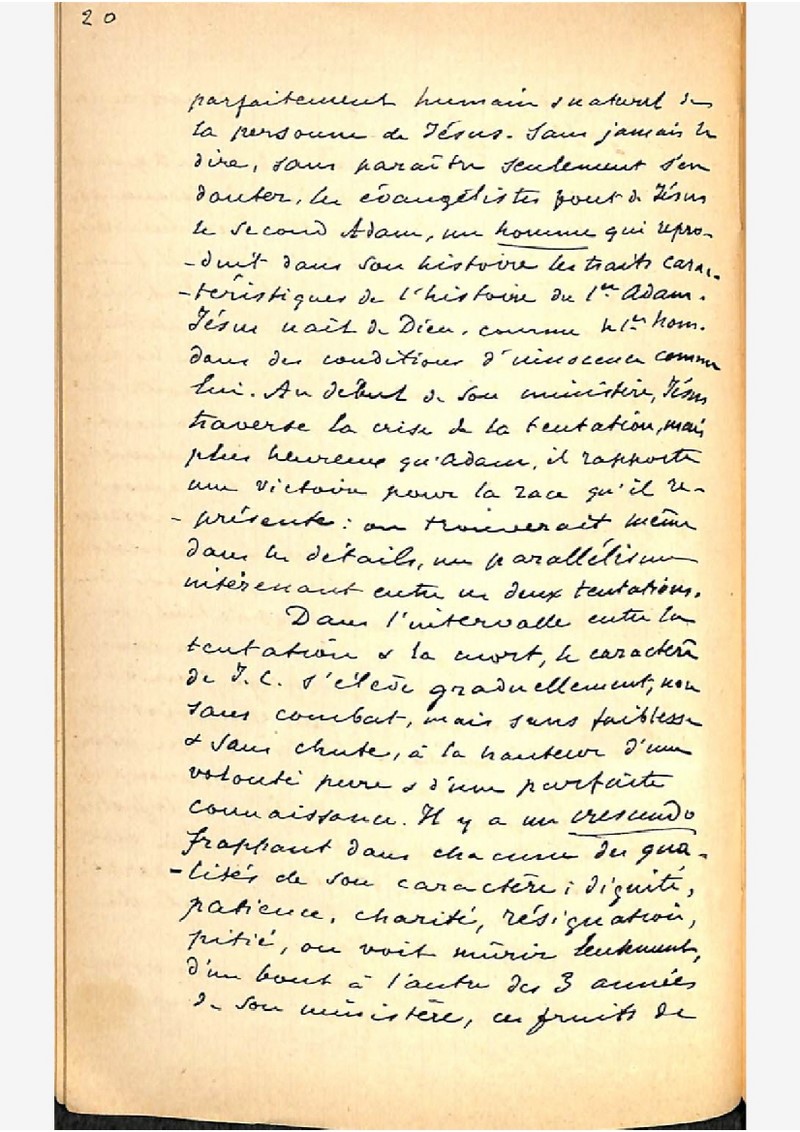 20
parfaitement humain & naturel de
la personne de Jésus. Sans jamais le
dire, sans paraître seulement s'en
douter, les évangélistes font de Jésus
le second Adam, un homme qui repro-
-duit dans son histoire les traits carac-
-téristiques de l'histoire du 1er Adam.
Jésus naît de Dieu, comme le 1er hom.
dans des conditions d'innocence comme
lui. Au début de son ministère, Jésus
traverse la crise de la tentation, mais
plus heureux qu'Adam, il rapporte
une victoire pour la race qu'il re-
-présente : on trouverait même
dans les détails, un parallélisme
intéressant entre les deux tentations.
Dans l'intervalle entre la
tentation & la mort, le caractère
de J. C. s'élève graduellement, non
sans combat, mais sans faiblesse
& sans chute, à la hauteur d'une
volonté pure & d'une parfaite
connaissance. Il y a un crescendo
frappant dans chacune des qua-
-lités de son caractère ; dignité,
patience, charité, résignation,
pitié, on voit mûrir lentement,
d'un bout à l'autre des 3 années
de son ministère, ces fruits de